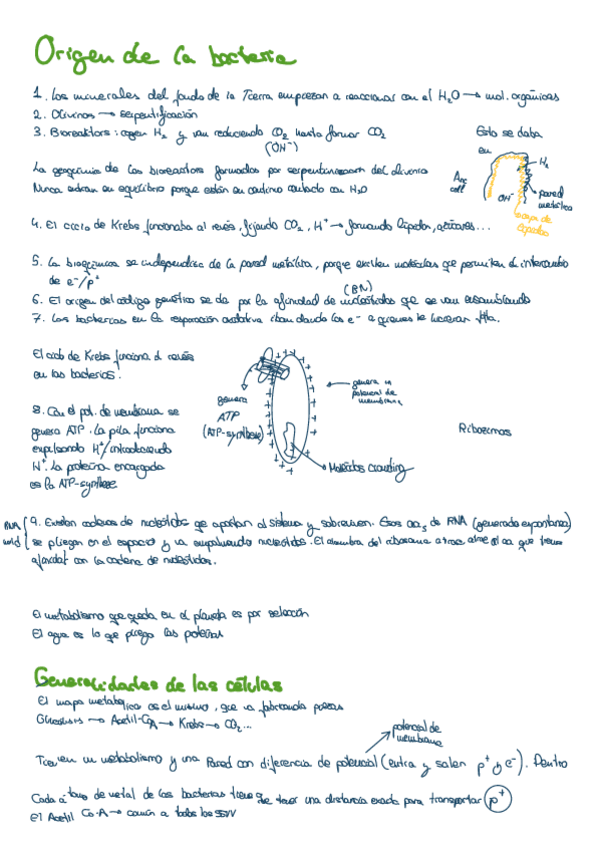 Origen de la bacteria
1. Los minerales del fondo de la Tierra empiezan a reaccionar con el H₂O → mol. orgánicas
2. Olivinos → serpentificación
3. Bioreaktors: cogen H₂ y van reduciendo CO₂ hasta formar CO₂
(OH⁻)
Esto se daba
en
H₂
OH⁻
pared
metálica
capa de
La geoquímica de los bioreactores formados por serpentinización del olivino
Nunca entran en equilibrio porque están en continuo contacto con H₂O
4. El ciclo de Krebs funcionaba al revés, fijando CO₂, H⁺ → formando lípidos, azúcares...
5. La bioquímica se independiza de la pared metálica, porque existen moléculas que permiten el intercambio
de e⁻/p⁺
(BN)
6. El origen del código genético se da por la afinidad de nucleótidos que se van ensamblando
7. Las bacterias en la respiración oxidativa iban dando los e⁻ a quienes le hicieran falta.
El ciclo de Krebs funciona al revés
en las bacterias.
8. Con el pot. de membrana se
genera ATP. La pila funciona
expulsando H⁺/introduciendo
H⁺. La proteína encargada
es la ATP-synthase
genera
ATP
(ATP-synthase)
genera un
potencial de
membrana
Moléculas crowding
Ribosomas
RNA
world
9. Existían cadenas de nucleótidos que aportan al sistema y sobreviven. Esos de RNA (generada espontánea)
se pliegan en el espacio y va empalmando nucleótidos. El alambra del ribosoma atrae al aa que tiene
afinidad con la cadena de nucleótidos.
El metabolismo que queda en el planeta es por selección
El agua es lo que pliega las proteínas
Generalidades de las células
El mapa metabólico es el mismo, que va fabricando piezas
Glucolisis → Acetil-CoA → Krebs → CO₂...
potencial de
membrana
Tienen un metabolismo y una Pared con diferencia de potencial (entra y salen p⁺ y e⁻). Dentro
Cada átomo de metal de las bacterias tiene que tener una distancia exacta para transportar p⁺
El Acetil Co-A → común a todos los